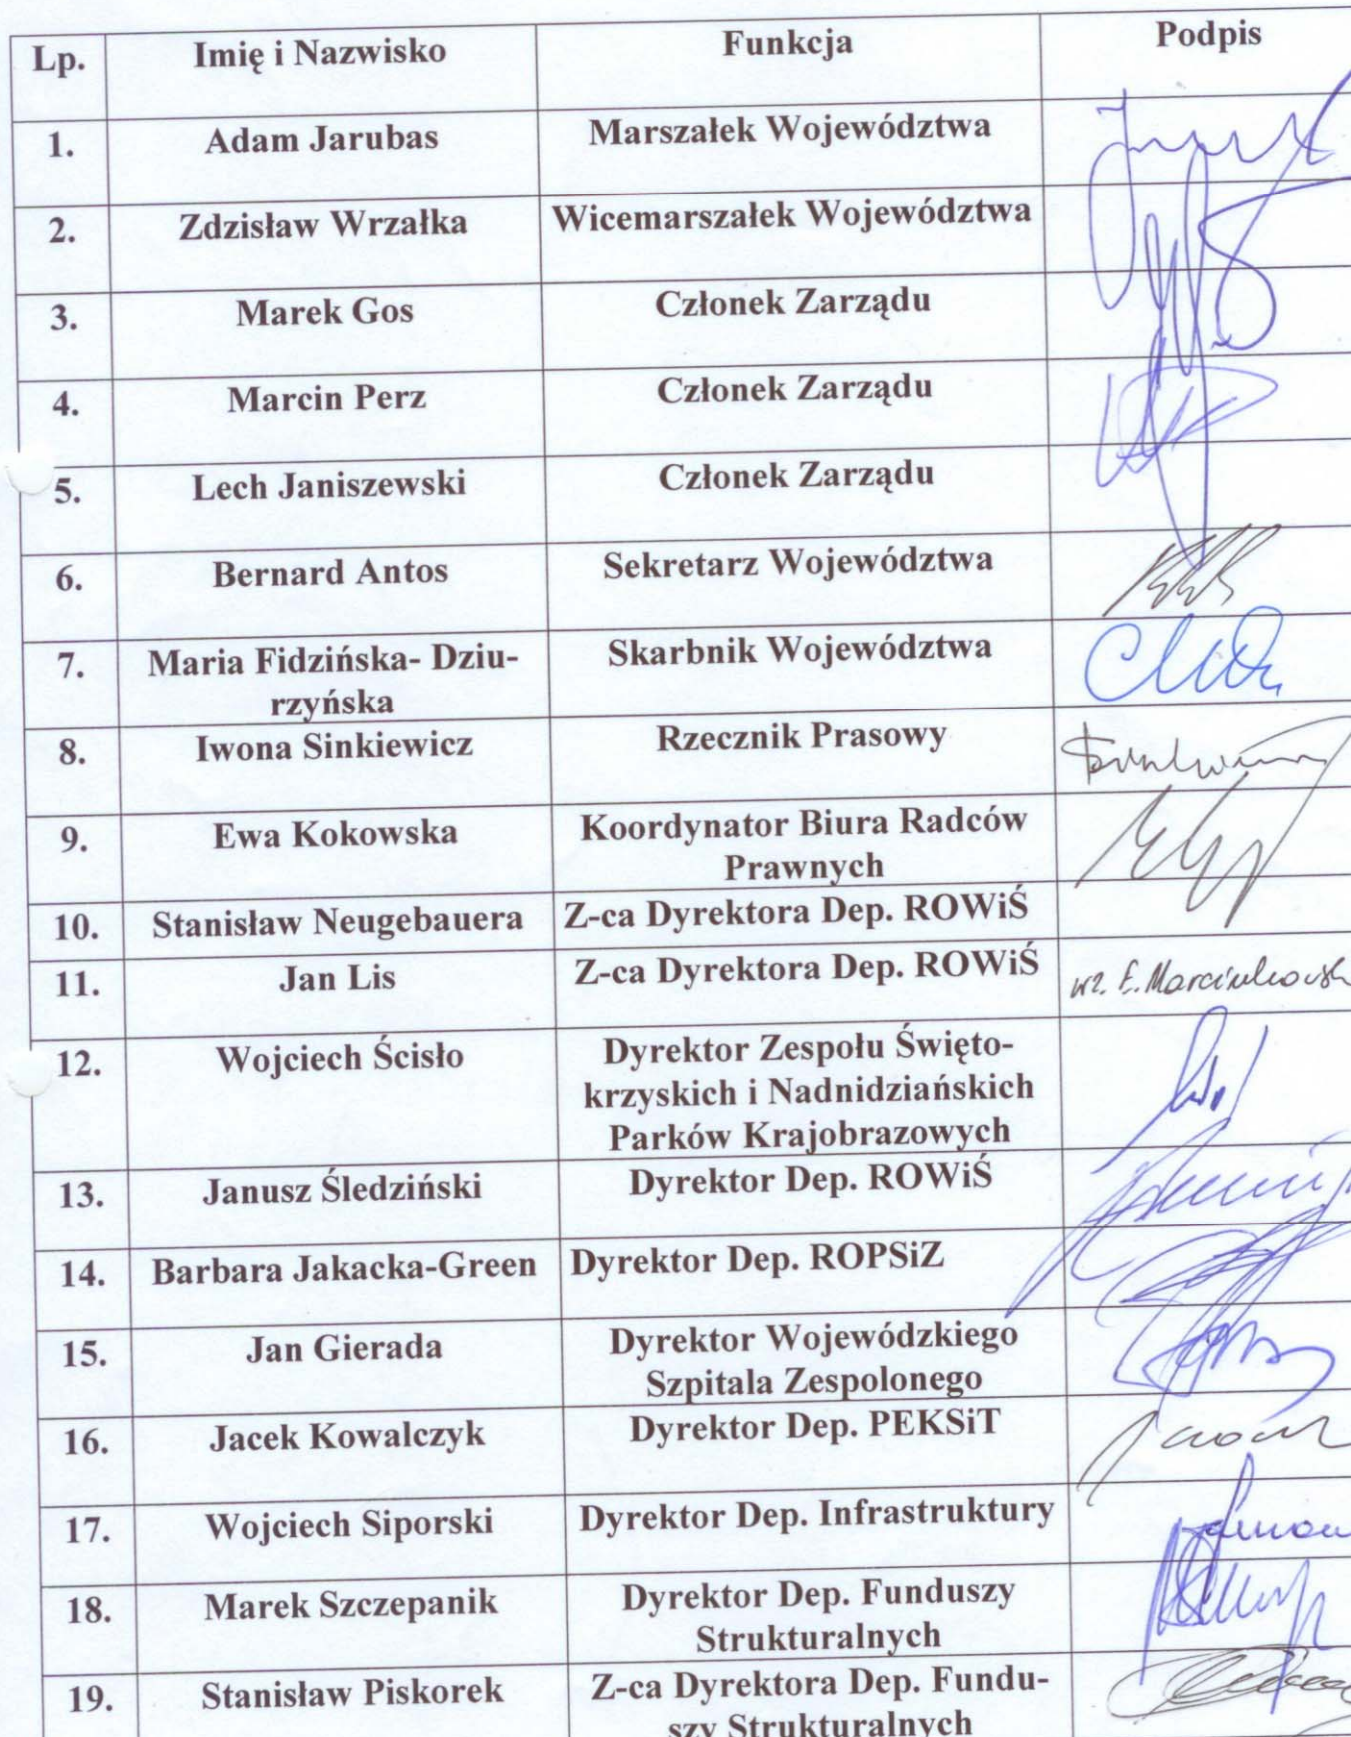 Lp. Imię i Nazwisko Funkcja Podpis
1. Adam Jarubas Marszałek Województwa
2. Zdzisław Wrzałka Wicemarszałek Województwa
3. Marek Gos Członek Zarządu
4. Marcin Perz Członek Zarządu
5. Lech Janiszewski Członek Zarządu
6. Bernard Antos Sekretarz Województwa
7. Maria Fidzińska- Dziu- Skarbnik Województwa
rzyńska
8. Iwona Sinkiewicz Rzecznik Prasowy
9. Ewa Kokowska Koordynator Biura Radców
Prawnych
10. Stanisław Neugebauera Z-ca Dyrektora Dep. ROWiŚ
11. Jan Lis Z-ca Dyrektora Dep. ROWiŚ wz. E.
12. Wojciech Ścisło Dyrektor Zespołu Święto-
krzyskich i Nadnidziańskich
Parków Krajobrazowych
13. Janusz Śledziński Dyrektor Dep. ROWiŚ
14. Barbara Jakacka-Green Dyrektor Dep. ROPSiZ
15. Jan Gierada Dyrektor Wojewódzkiego
Szpitala Zespolonego
16. Jacek Kowalczyk Dyrektor Dep. PEKSiT
17. Wojciech Siporski Dyrektor Dep. Infrastruktury
18. Marek Szczepanik Dyrektor Dep. Funduszy
Strukturalnych
19. Stanisław Piskorek Z-ca Dyrektora Dep. Fundu-
szy Strukturalnych